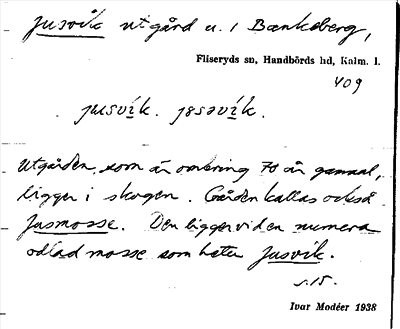 Jusvik utgård u. 1 Bankeberg,
Fliseryds sn, Handbörds hd, Kalm. l.
409
jusvi̱k. jɐsəvi̱k.
Utgården, som är omkring 70 år gammal,
ligger i skogen. Gården kallas också
Jusmosse. Den ligger vid en numera
odlad mosse som heter Jusvik.
s. 15.
Ivar Modéer 1938